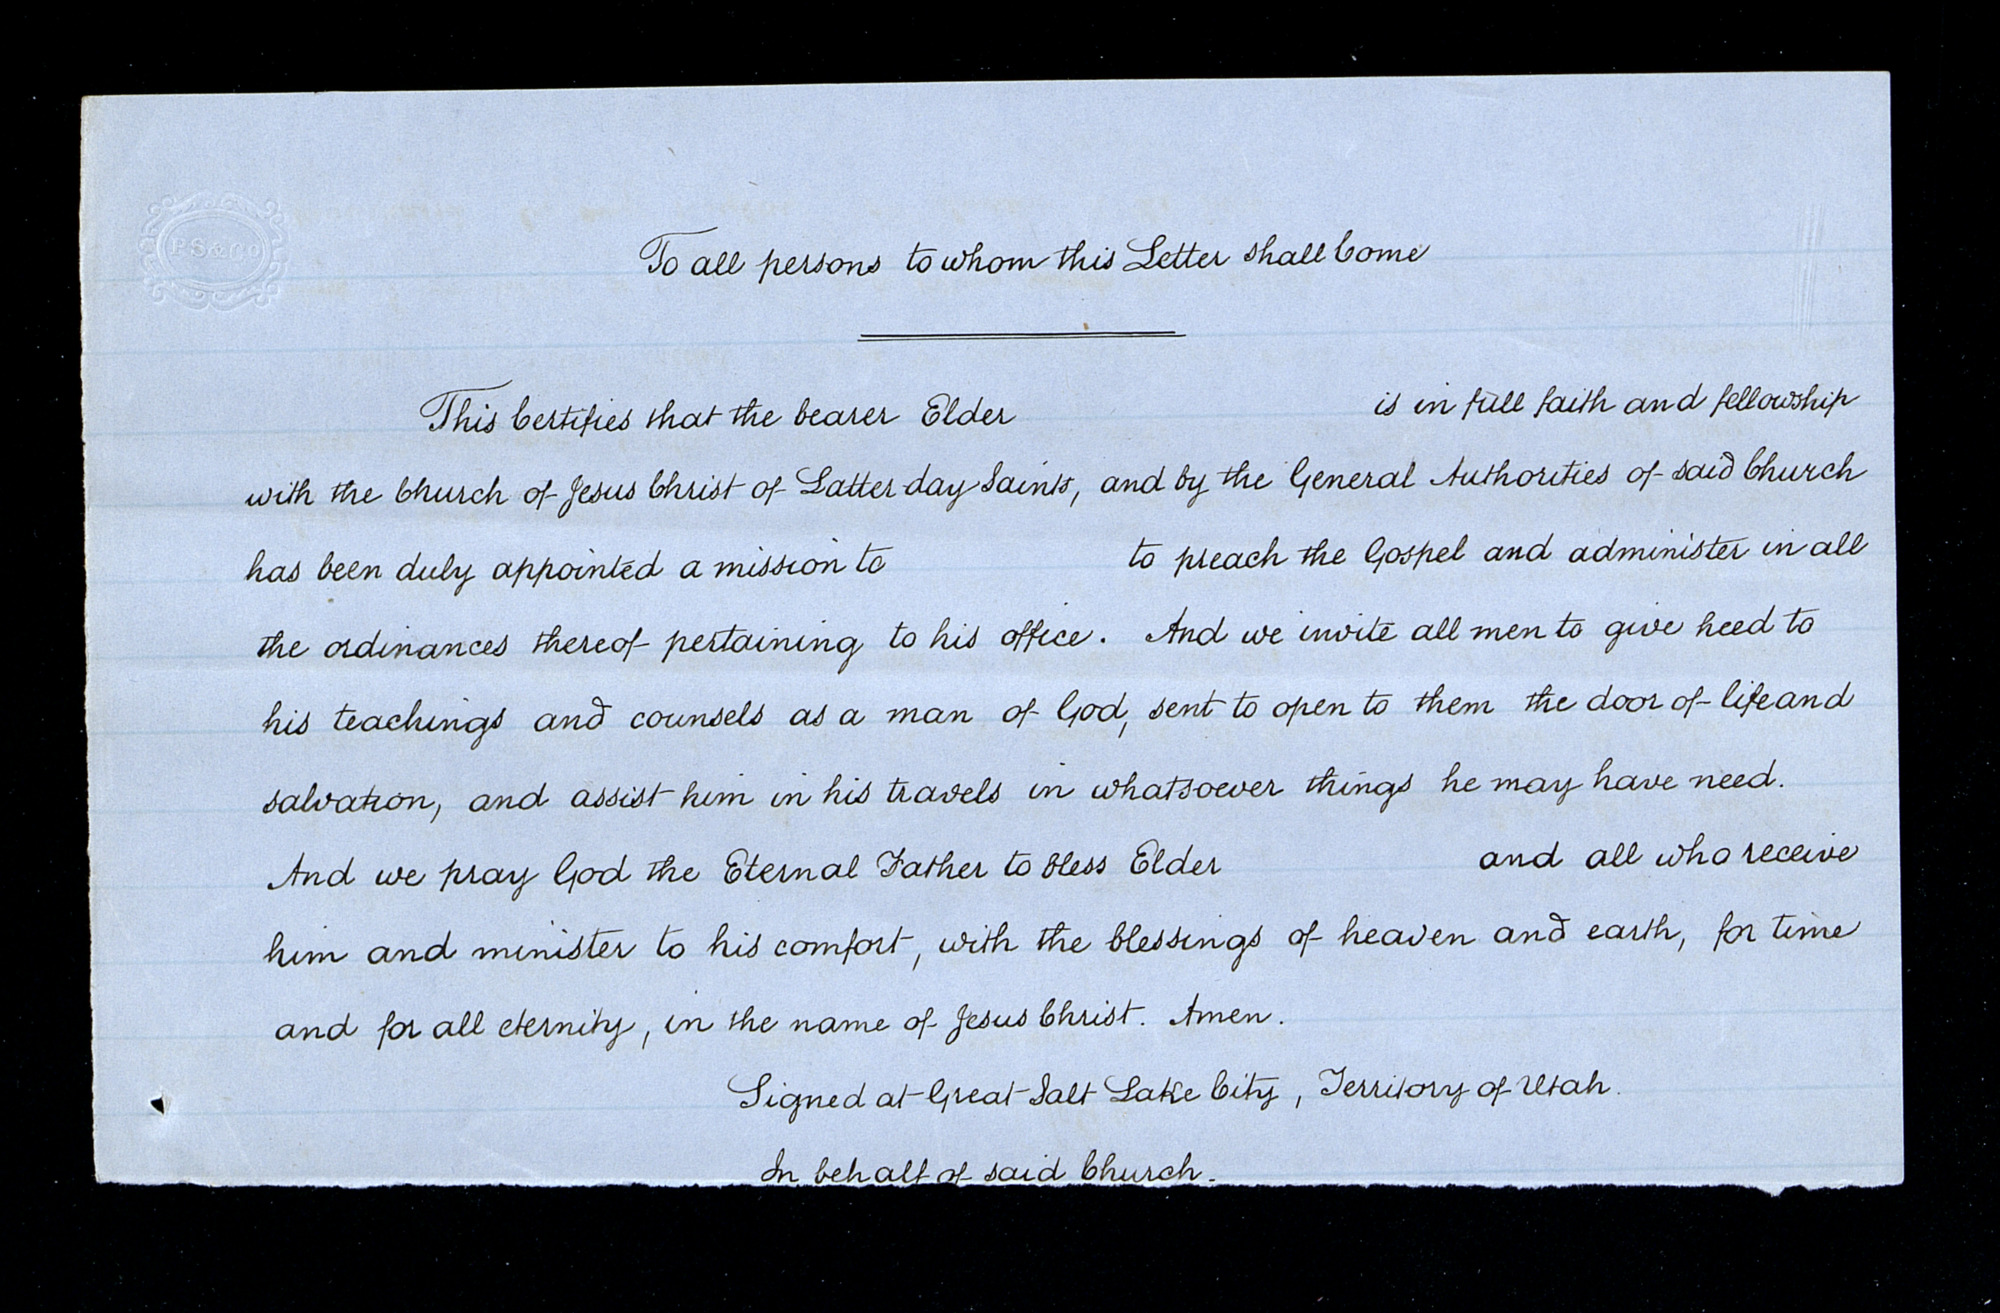 P S & Co
To all persons to whom this Letter shall Come
This Certifies that the bearer Elder is in full faith and fellowship
with the Church of Jesus Christ of Latter day Saints, and by the General Authorities of said Church
has been duly appointed a mission to to preach the Gospel and administer in all
the ordinances thereof pertaining to his office. And we invite all men to give heed to
his teachings and counsels as a man of God, sent to open to them the door of life and
salvation, and assist him in his travels in whatsoever things he may have need.
And we pray God the Eternal Father to bless Elder and all who receive
him and minister to his comfort, with the blessings of heaven and earth, for time
and for all eternity, in the name of Jesus Christ. Amen.
Signed at Great Salt Lake City, Territory of Utah.
In behalf of said Church.